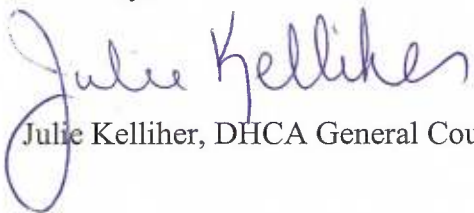 Julie Kelliher
Julie Kelliher, DHCA General Cou